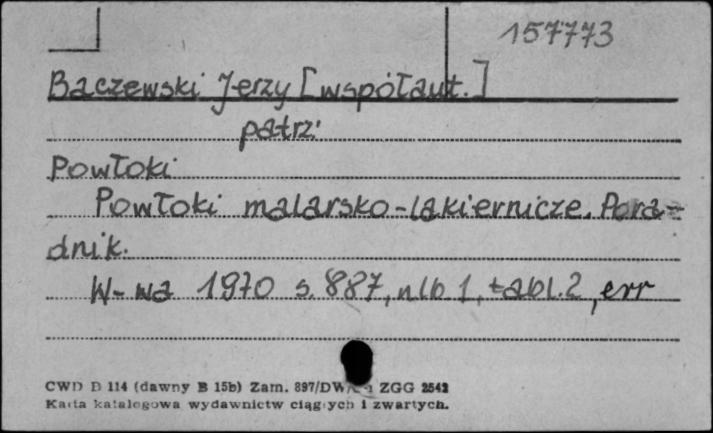 157773
Baczewski Jerzy [współaut.]
patrz:
Powłoki
Powłoki malarsko-lakiernicze. Pora-
dnik.
W-wa 1970 s. 887, nlb 1, tabl. 2, err
CWD D 114 (dawny B 15b) Zam. 897/DW/ ZGG 2542
Karta katalogowa wydawnictw ciągłych i zwartych.